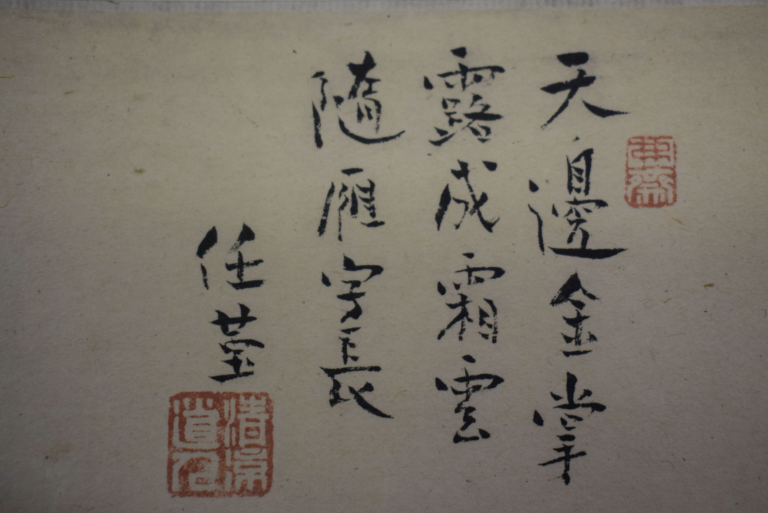 天邊金掌
露成霜雲
隨雁字長
任堇
清涼道人